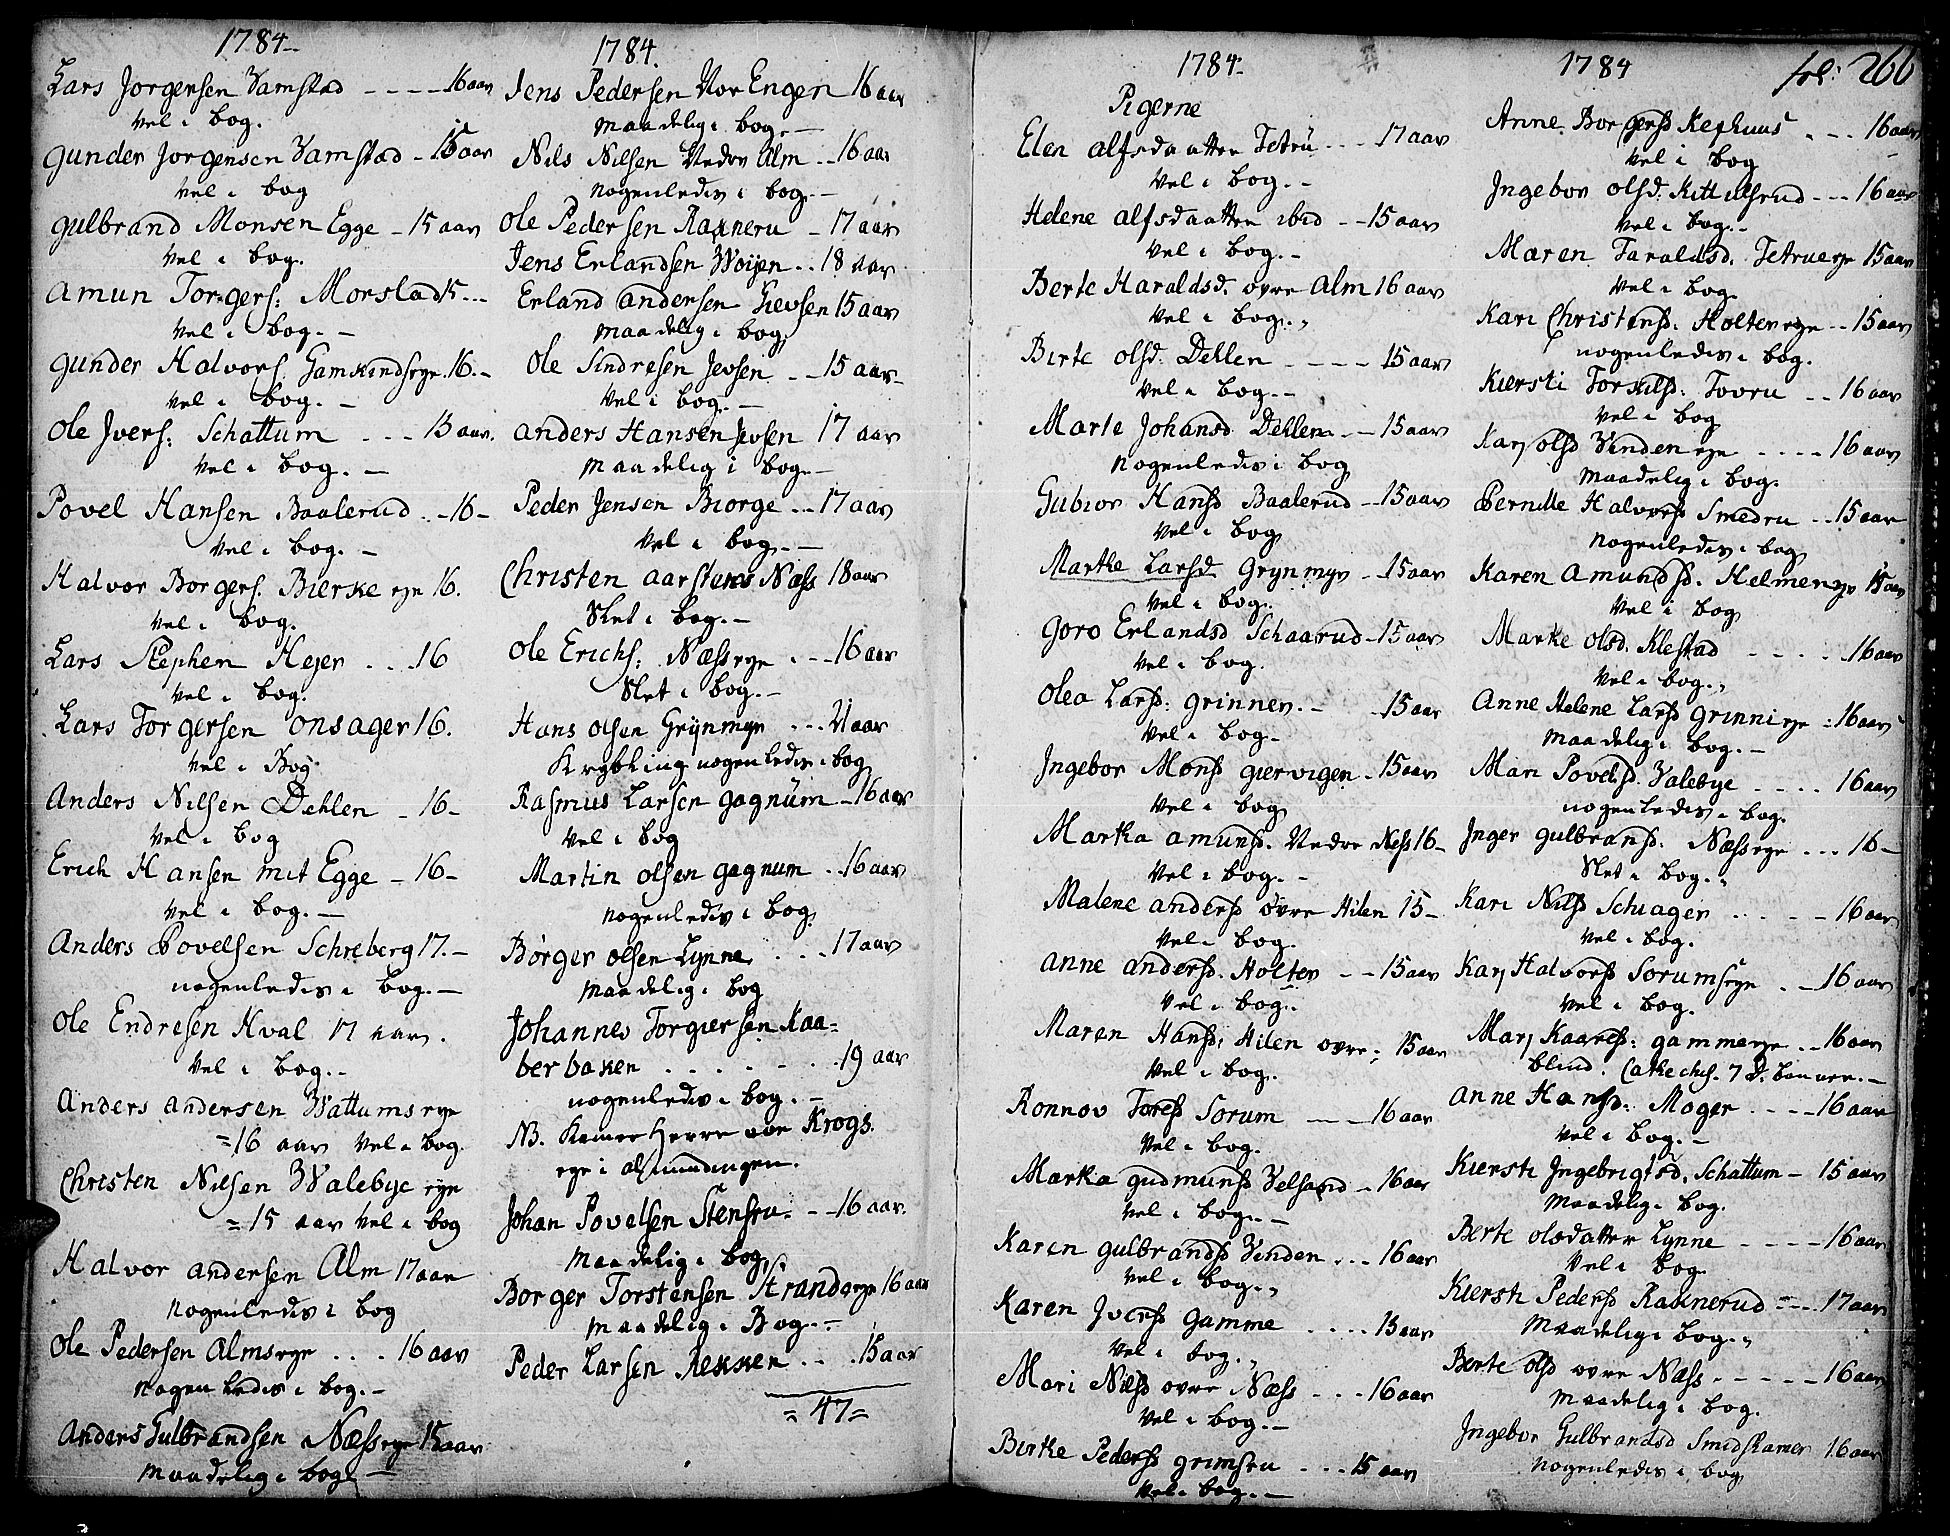 1784
Lars Jorgensen Vamstad - - - - 16 aar
vel i bog.
gunder Jorgensen Vamstad - 15 aar
vel i bog
gulbrand Monsen Egge - 15 aar
vel i bog.
amun Torgers: Morstad 15 - - -
vel i bog. -
gunder Halvors. Gamkindseye. 16. -
vel i bog. -
Ole Jvers: Schattum - - - 15 aar.
vel i bog. -
Povel Hansen Baalerud . - 16 -
vel i bog. -
Halvor Borgers. Bierke eye 16.
vel i bog.
Lars Stephen Hejer . . . 16
vel i bog.
Lars Torgersen onsager 16.
vel i Bog
Anders Nilsen Dehlen - 16 -
vel i bog
Erich Hansen mit Egge - 16 -
vel i bog. -
Anders Povelsen Schreberg 17. -
nogenledis i bog. -
Ole Endresen Hval 17 aar.
vel i bog. -
Anders andersen Wattumseye
= 16 aar vel i bog.
Christen Nilsen Walebye eye
= 15 aar vel i bog
Halvor andersen Alm 17 aar
nogenledis i bog
Ole Pedersen almseye . . . 16 aar
nogenledis i bog. -
Anders Gulbrandsen Næsseye 15 aar
maadelig i bog -
1784.
Jens Pedersen Nor Engen 16 aar
maadelig i bog. -
Nils Nilsen Nedre Alm . . 16 aar
nogenledis i bog. -
Ole Pedersen Raxneru - 17 aar
Jens Erlandsen Woijen . . 18 aar
Erland andersen Gievsen 15 aar
maadelig i bog.
Ole Sindresen Jevsen - - 15 aar
vel i bog. -
anders Hansen Jevsen 17 aar
maadelig i bog. -
Peder Jensen Biorge . . 17 aar
vel i bog. -
Christen aarstens Næss 18 aar
Slet i bog. -
Ole Erichs: Næsseye . - - 16 aar
Slet i bog. -
Hans olsen Grijnmyr . . . 21 aar
Krybling nogenledis i bog
Rasmus Larsen gagnum - 16 aar
vel i bog
Martin olsen gagnum . . 16 aar
nogenledis i bog.
Børger olsen Lynne . . . 17 aar
maadelig i bog
Johannes Torgiersen Kaa=
berbaken . . . . . . 19 aar
nogenledis i bog. -
NB. Kamer Herre von Krogs.
eye i almindingen.
Johan Povelsen Stensru. - - 16 aar.
maadelig i bog.
Borger Torstensen Strandeye 16 aar
maadelig i Bog. -
Peder Larsen Rekken . . . 15 aar
= 47 =
1784
Pigerne
Elen alfsdaatter Tetru . . . 17 aar
vel i bog. -
Helene alfsdaatter ibid - - 15 aar
vel i bog. -
Berte Haraldsd. ovre alm 16 aar
vel i bog.
Birte olsd. Dehlen - - - - 15 aar
vel i bog. -
Marte Johansd Dehlen - - 15 aar
nogenledis i bog
Gubior Hansd Baalerud - 15 aar
vel i bog
Marthe Larsd Grynmyr - 15 aar
vel i bog.
goro Erlandsd Schaarud - 15 aar
vel i bog.
olea Larsd: grinner. - - 15 aar
vel i bog -
Jngebor Monsd giervigen - 15 aar
vel i bog
Martha amunsd. Nedre Ness 16 -
vel i bog. -
Malene andersd ovre Hilen 15 -
vel i bog.
anne andersd. Holter - - 15 aar
vel i bog.
Maren Hansd. Hilen ovre = 15 aar
vel i bog.
Ronnov Toresd Sorum - - 16 aar
vel i bog.
Marka gudmunsd Velsand - 16 aar
vel i bog. -
Karen gulbrandsd Vinden . . . 16 aar
vel i bog.
Karen Jversd Gamme . . . . 15 aar
vel i bog.
Mari Nilsd ovre Næss - - - 16 aar
vel i bog. -
Birthe Pedersd grimsru . . . 15 aar
vel i bog. -
1784
fol: 266
Anne Borgersd Kexhuus . . . 16 aar
vel i bog
Jngebor olsd. Kittulsrud - - - 16 aar
vel i bog. -
Maren Taraldsd. Tetrueye 15 aar
vel i bog.
Kari Christensd. Holtereye . . 15 aar
nogenledis i bog.
Kiersti Torkilsd. Tovru . . 16 aar
vel i bog
Karj olsd Vinden eye . . . . 16 aar
maadelig i bog.
Pernille Halvorsd Smedru . . 15 aar
nogenledis i bog
Karen Amundsd. Helmeneye 15 aar
vel i bog
Marke olsd. Klestad - - - - 16 aar
vel i bog.
Anne Helene Larsd Grinnieye = 16 aar
maadelig i bog. -
Mari Povelsd. Valebye . . . . 16 aar
nogenledis i bog.
Jnger gulbransd. Næsseye . . . 16 -
Slet i bog.
Kari Nilsd Schiager . . . . - 16 aar
vel i bog.
Karj Halvorsd Sorumseye . - 16 aar
vel i bog.
Marj Kaaresd: gammeeye . . 16 aar
blind.
anne Hansd. Moger . . . - 16 aar
vel i bog. -
Kiersti Jngebrigtsd. Schattum - 15 aar
maadelig i bog.
Berte olsdatter Lynne - - - - 16 aar
vel i bog.
Kiersti Pedersd Raknerud - - - 17 aar
maadelig i bog.
Berte olsd ovre Næss - - - - - 16 aar
maadelig i bog.
Jngebor Gulbrandsd Smedskamer 16 aar
nogenledis i bog